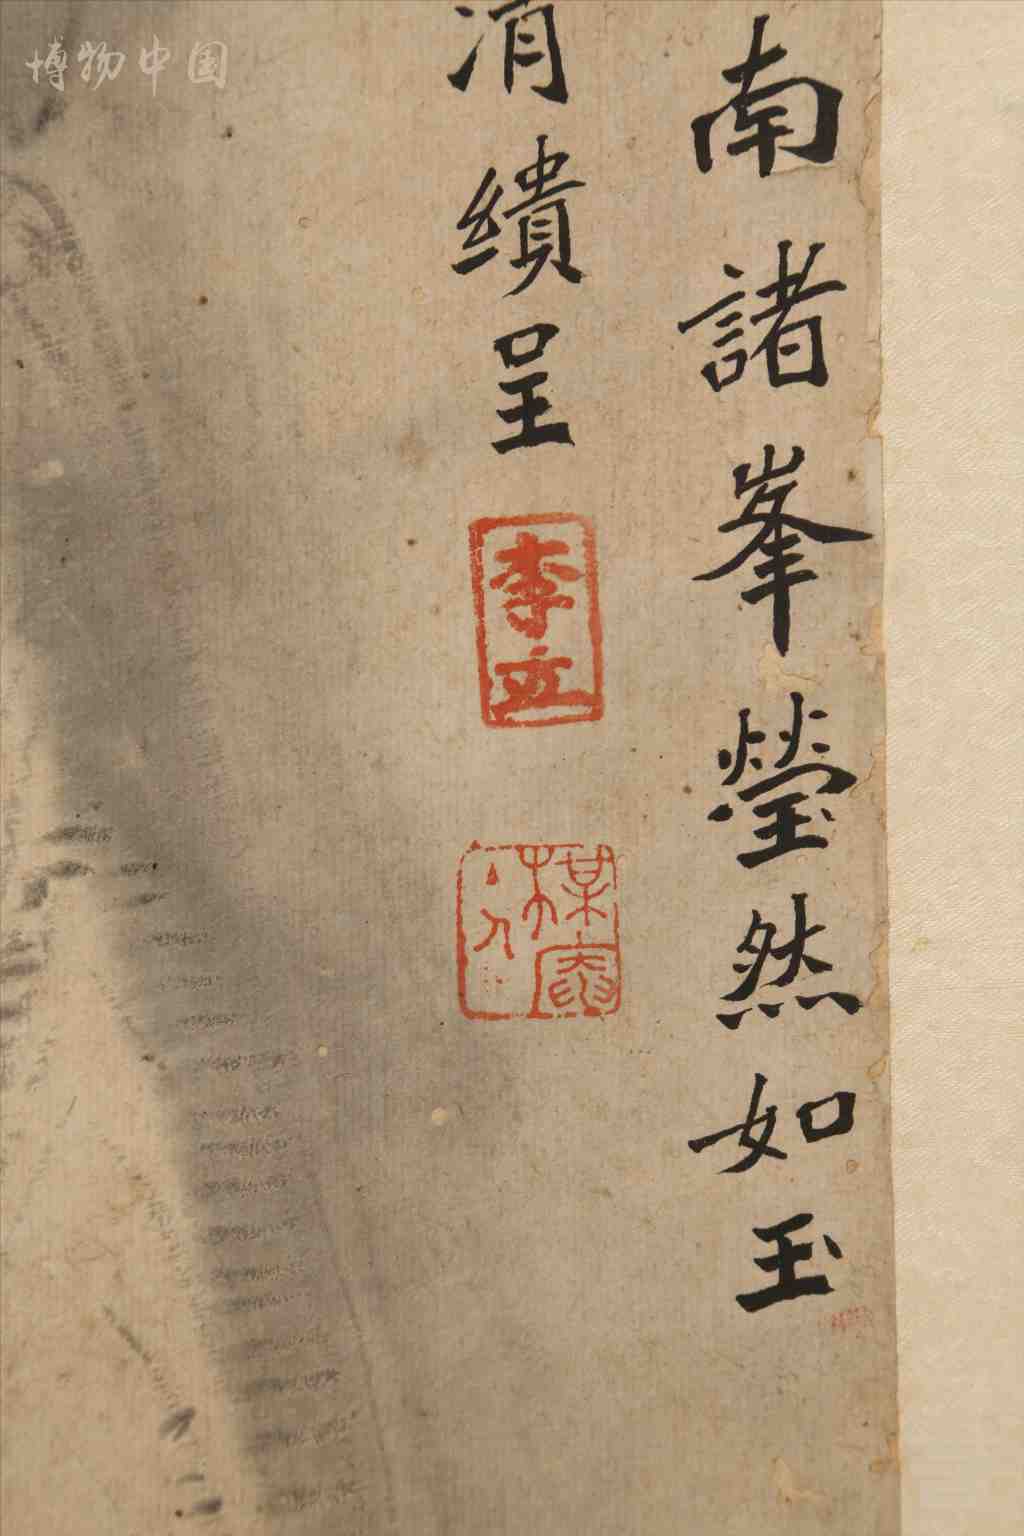 博物中国
南諸峯瑩然如玉
涓繢呈
李立